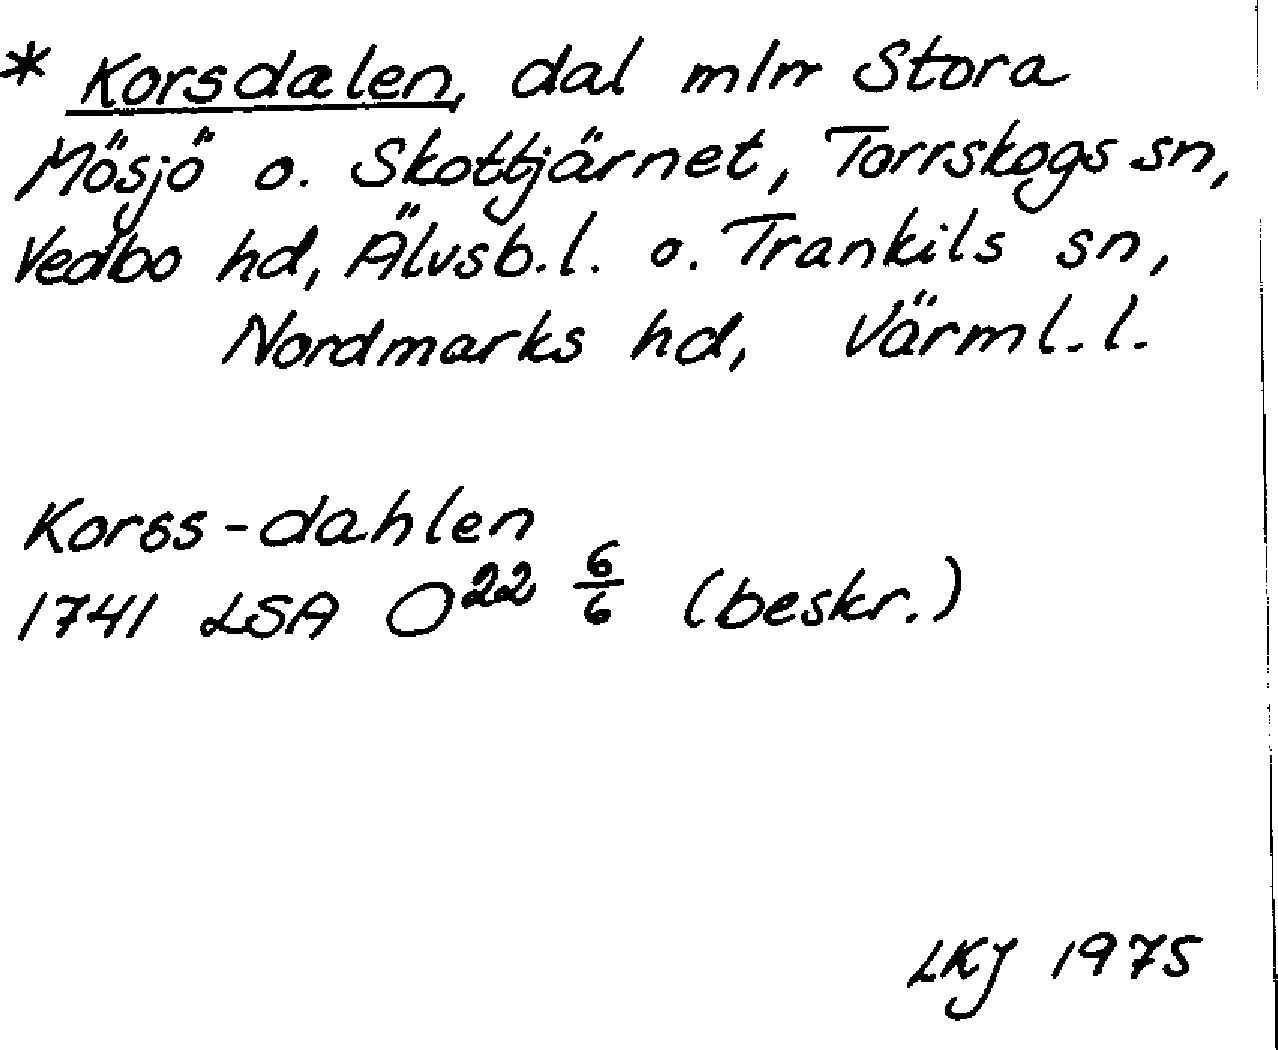 * Korsdalen, dal mlrr Stora
Mösjö o. Skottjärnet, Torrskogs sn,
Vedbo hd, Älvsb.l. o. Trankils sn,
Nordmarks hd, Värml.l.
Korss-dahlen
1741 LSA O²² 6/6 (beskr.)
LKJ 1975